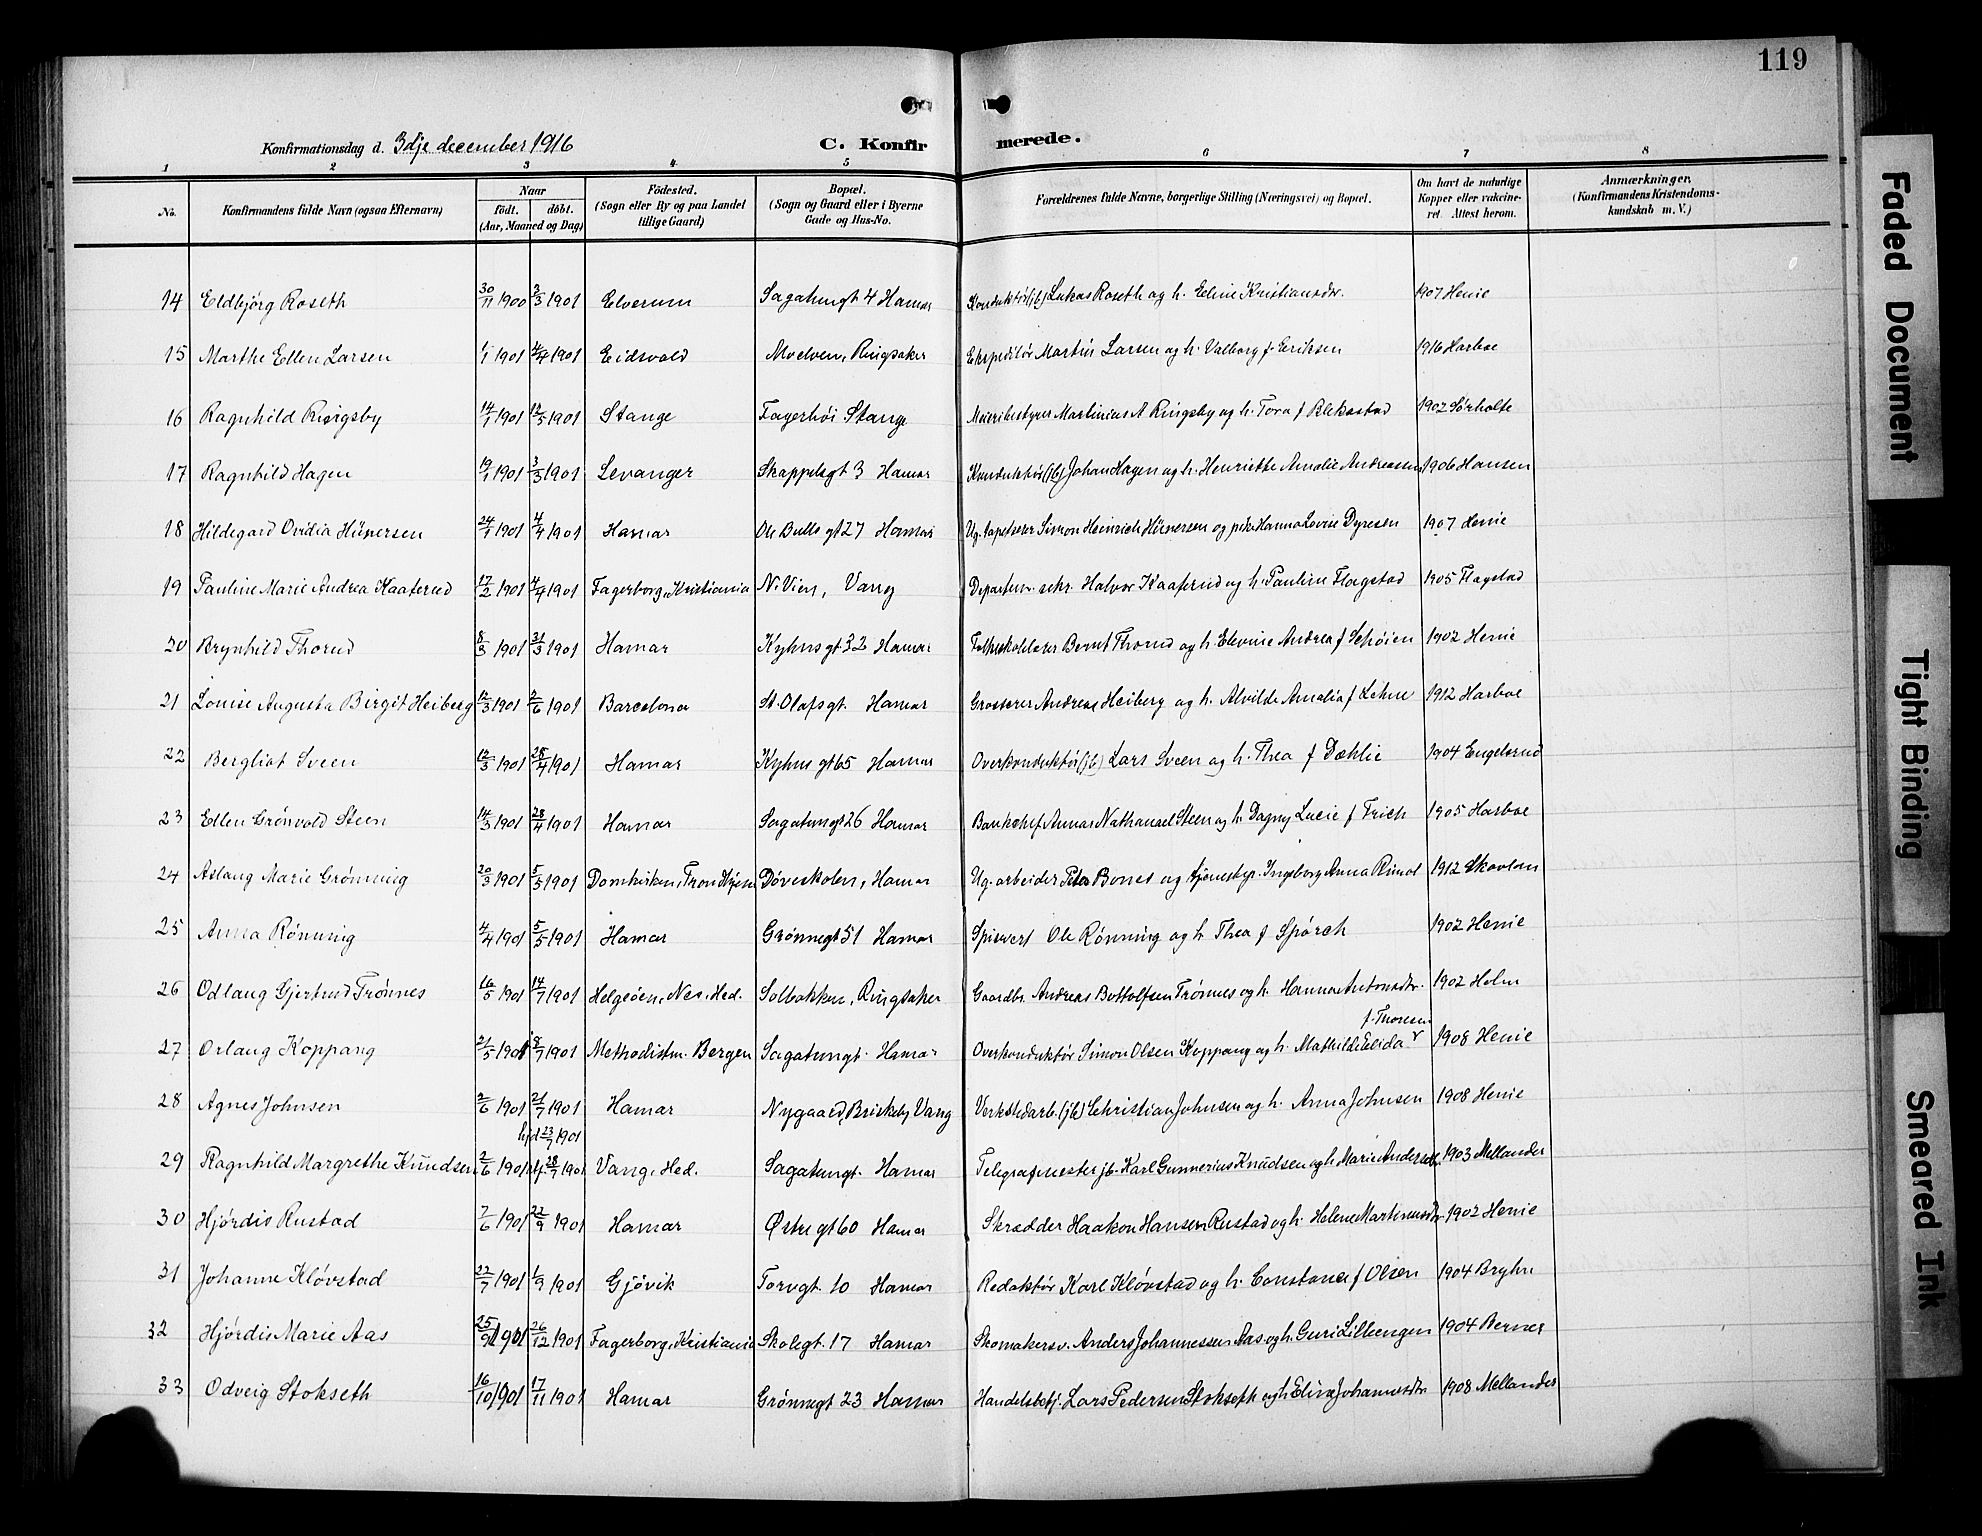 119
Konfirmationsdag d. 3dje december 1916 C. Konfirmerede.
1 2 3 4 5 6 7 8
No. Konfirmandens fulde Navn (ogsaa Efternavn) Naar født. døbt. (Aar, Maaned og Dag) Fødested. (Sogn eller By og paa Landet tillige Gaard) Bopæl. (Sogn og Gaard eller i Byerne Gade og Hus-No. Forældrenes fulde Navne, borgerlige Stilling (Næringsvei) og Bopæl. Om havt de naturlige Kopper eller vakcineret. Attest herom. Anmærkninger. (Konfirmandens Kristendomskundskab m. V.)
14 Eldbjørg Roseth 30/11 1900 3/3 1901 Elverum Sagatungt 4 Hamar Konduktør (jb) Lukas Roseth og h. Eline Kristiansdr. 1907 Henie
15 Marthe Ellen Larsen 1/1 1901 4/4 1901 Eidsvold Moelven, Ringsaker Ekspeditør Martin Larsen og h. Valborg f. Eriksen 1916 Harboe
16 Ragnhild Ringsby 14/1 1901 12/5 1901 Stange Fagerhøi Stange Meieribestyrer Martinius A Ringsby og h. Tora f Blekastad 1902 Sørholte
17 Ragnhild Hagen 19/1 1901 3/3 1901 Levanger Skappelsgt 3 Hamar Konduktør (jb) Johan Hagen og h. Henriette Amalie Andreassen 1906 Hansen
18 Hildegard Ovidia Hünersen 24/1 1901 4/4 1901 Hamar Ole Bulls gt 27 Hamar Ug. tapetserer Simon Heinrich Hünersen og pike Hanna Lovise Dyresen 1907 Henie
19 Pauline Marie Andrea Kaaterud 17/2 1901 4/4 1901 Fagerborg, Kristiania N. Vien, Vang Departem. sekr. Halvor Kaaterud og h. Pauline Flagstad 1905 Flagstad
20 Brynhild Thorud 8/3 1901 31/3 1901 Hamar Kyhns gt. 32 Hamar Folkeskolelærer Bernt Thorud og h. Elevine Andrea f Schøien 1902 Henie
21 Louise Augusta Birgit Heiberg 12/3 1901 2/6 1901 Barcelona St. Olafsgt. Hamar Grosserer Andreas Heiberg og h. Alvilde Amalia f Lehne 1912 Harboe
22 Bergliot Sveen 12/3 1901 28/4 1901 Hamar Kyhns gt 65 Hamar Overkonduktør (jb) Lars Sveen og h. Thea f Dæhlie 1904 Engelsrud
23 Ellen Grønvold Steen 14/3 1901 28/4 1901 Hamar Sagatungt 26 Hamar Bankchef Annar Nathanael Steen og h Dagny Lucie f Frich 1905 Harboe
24 Aslaug Marie Grønning 20/3 1901 5/5 1901 Domkirken, Tron Hjem Døveskolen, Hamar Ug. arbeider Peter Bones og tjenestep. Ingeborg Anna Rimol 1912 Skavlan
25 Anna Rønning 4/4 1901 5/5 1901 Hamar Grønnegt 51 Hamar Spisevert Ole Rønning og h Thea f Spørck 1902 Henie
26 Odlaug Gjertrud Trønnes 16/5 1901 14/7 1901 Helgøen, Nes, Hed. Solbakken, Ringsaker Gaardbr. Andreas Bottolfsen Trønnes og h. Hanna Antonsdr. 1902 Holm
f. Thoresen
27 Orlaug Koppang 21/5 1901 8/7 1901 Methodistm. Bergen Sagatungt. Hamar Overkonduktør Simon Olsen Koppang og h. Mathilde Elida 1908 Henie
28 Agnes Johnsen 2/6 1901 21/7 1901 Hamar Nygaard, Briskeby Vang Verkstedarb. (jb) Christian Johnsen og h. Anna Johnsen 1908 Henie
hjd 23/7 1901
29 Ragnhild Margrethe Knudsen 2/6 1901 stf 28/7 1901 Vang, Hed. Sagatungt. Hamar Telegrafmester jb. Karl Gunnerius Knudsen og h Marie Andersdtr. 1903 Mellander
30 Hjørdis Rustad 7/6 1901 22/9 1901 Hamar Østre gt 60 Hamar Skrædder Haakon Hansen Rustad og h. Helene Martinusdtr. 1902 Henie
31 Johanne Kløvstad 22/7 1901 1/9 1901 Gjøvik Torvgt. 10 Hamar Redaktør Karl Kløvstad og h. Constance f Olsen 1904 Bryhn
32 Hjørdis Marie Aas 25/9 1901 26/12 1901 Fagerborg, Kristiania Skolegt. 17 Hamar Skomakersv. Anders Johannessen Aas og h. Guri Lilleengen 1904 Berner
33 Odveig Stokseth 16/10 1901 17/11 1901 Hamar Grønnegt 23 Hamar Handelsbetj. Lars Pedersen Stokseth og h Eline Johannesdtr 1908 Mellander
Faded Document
Tight Binding
Smeared Ink